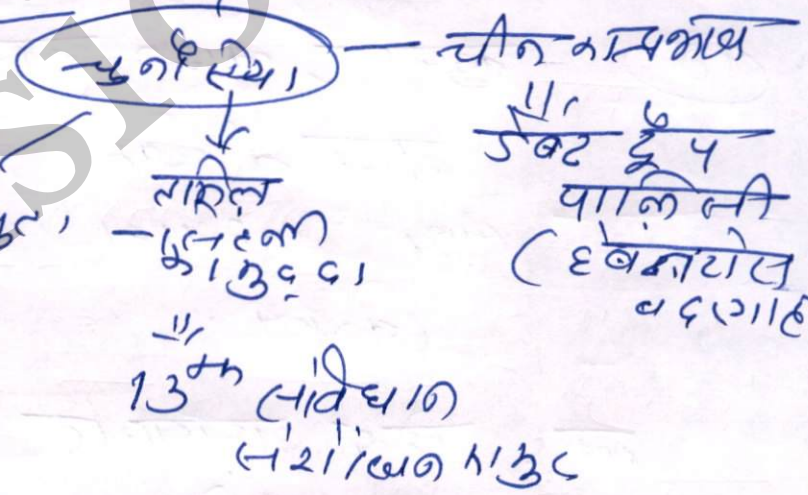 चुनौतिया। — चीन का प्रभाव
डेबट ट्रैप
पालिसी
(हंबनटोटा
बंदरगाह
तमिल
- पुनर्वास
का मुद्दा
13th संविधान
संशोधन का मुद्